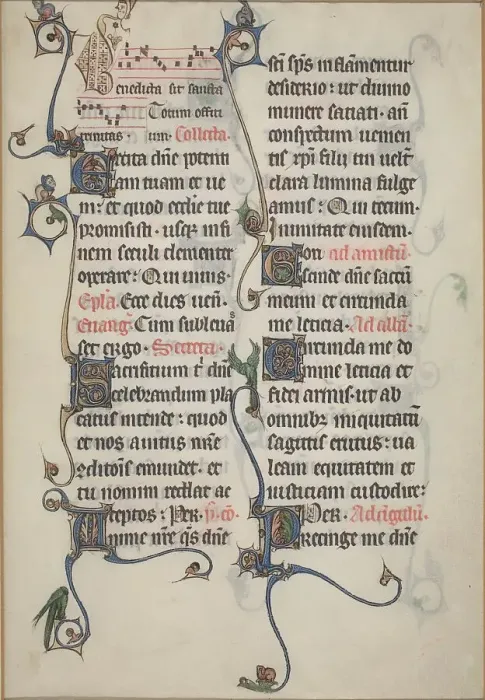 Benedicta sit sancta
Totum offici
trinitas. um. Collecta.
Excita dñe potenti
am tuam et ue
ni: et quod ecclie tue
promisisti. usq in fi
nem seculi clementer
operare: Qui uiuis.
Epla. Ecce dies ueñ.
Euang. Cum subleuas
set ergo. Secreta.
Sacrificium t dñe
celebrandum pla
catus intende: quod
et nos a uitiis nrẽ
ꝯditois emundet. et
tuo nomini reddat ac
ceptos: Per. p̃. cõ.
Anime nre qs dñe
sci sps inflamentur
desiderio: ut diuino
munere satiati. añ
conspectum uenien
tis xpi filii tui uelut
clara lumina fulge
amus: Qui tecum.
In unitate eiusdem.
Con ad amictũ.
scinde dñe saccũ
meum et circunda
me leticia. Ad albã.
Circunda me do
mine leticia et
fidei armis. ut ab
omnibz iniquitatũ
sagittis erutus: ua
leam equitatem et
iusticiam custodire:
Per. Ad cigulũ.
Precinge me dñe